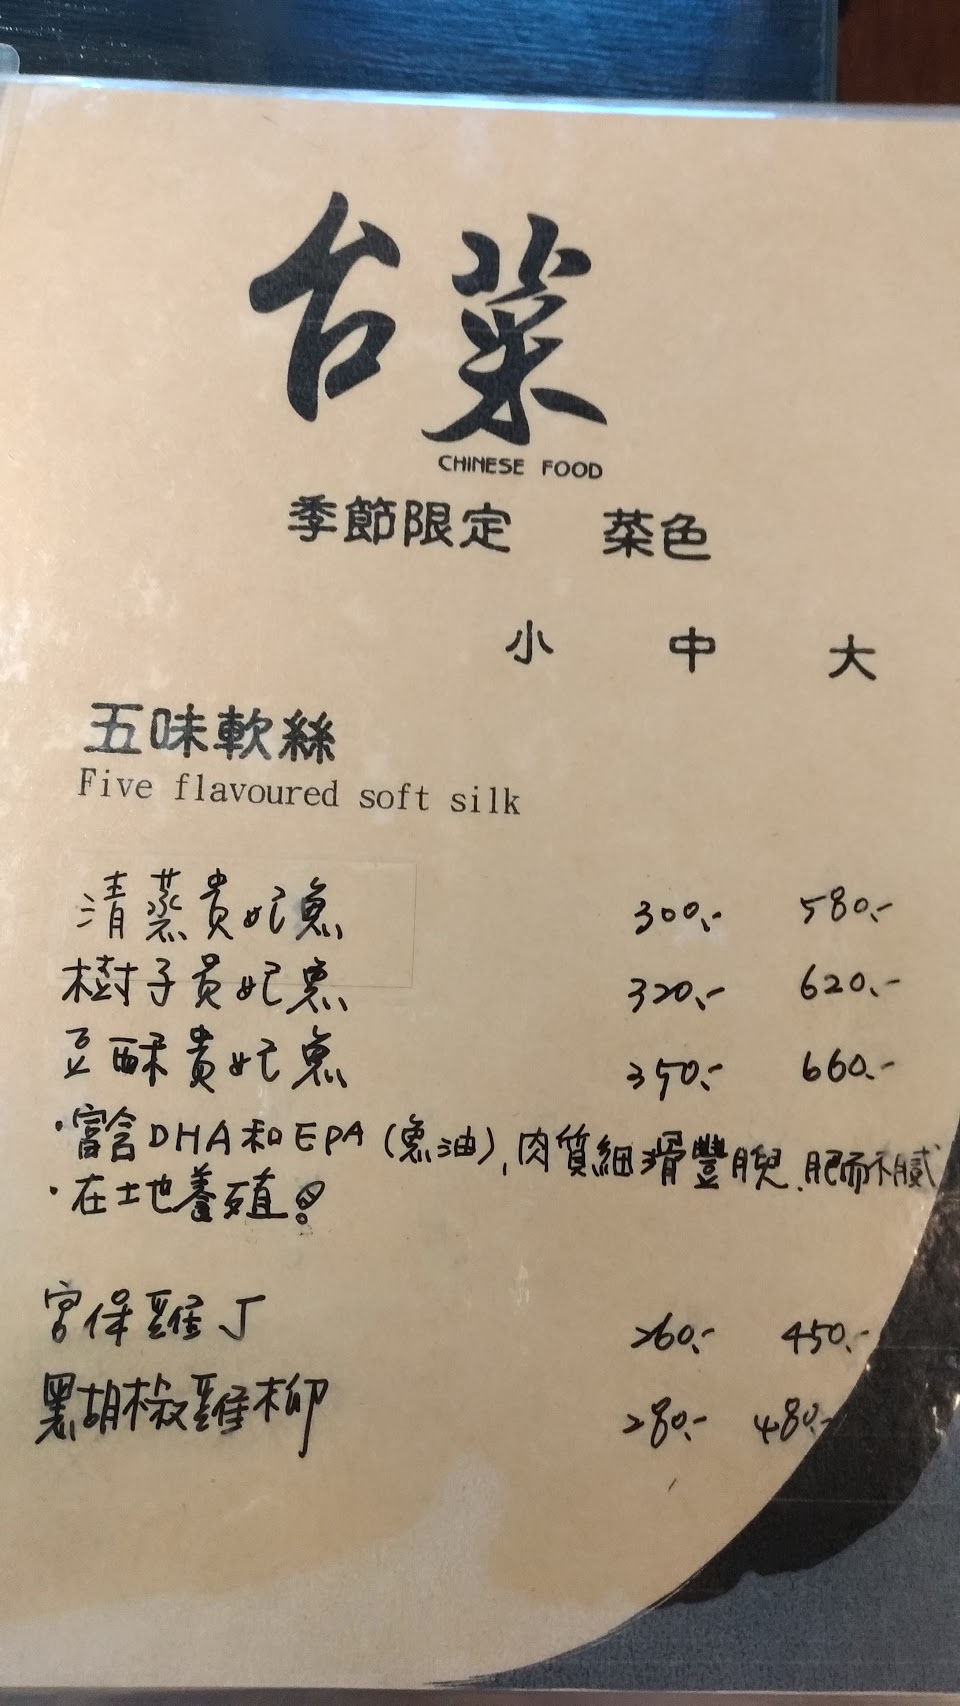 台菜
CHINESE FOOD
季節限定 菜色
小 中 大
五味軟絲
Five flavoured soft silk
清蒸貴妃魚 300.- 580.-
樹子貴妃魚 320.- 620.-
豆酥貴妃魚 350.- 660.-
·富含DHA和EPA(魚油),肉質細滑豐腴、肥而不膩
·在土地養殖!
宮保雞丁 260.- 450.-
黑胡椒雞柳 280.- 480.-